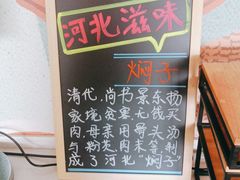 河北滋味
焖子
清代,尚书景东杨
家境贫寒无钱买
肉,母亲用骨头汤
与粉麦、肉末等制
成了河北“焖子”